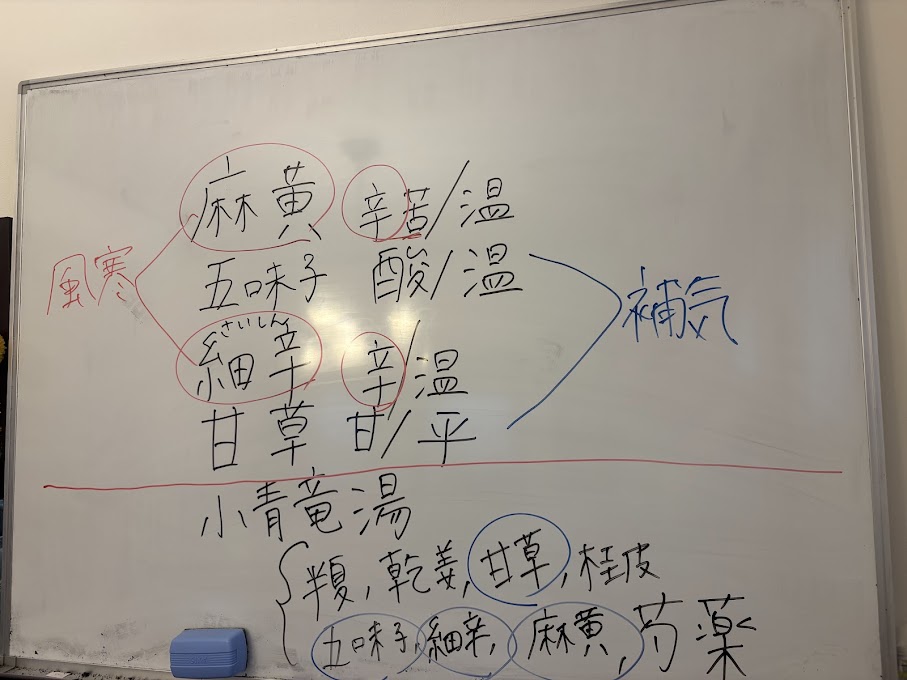 麻黄 辛苦/温
五味子 酸/温
風寒
補気
さいしん
細辛 辛/温
甘草 甘/平
小青竜湯
半夏, 乾姜, 甘草, 桂皮
五味子, 細辛, 麻黄, 芍薬